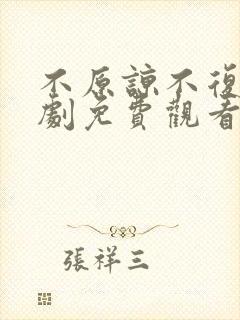 不原諒不復
劇免費觀看
張祥三